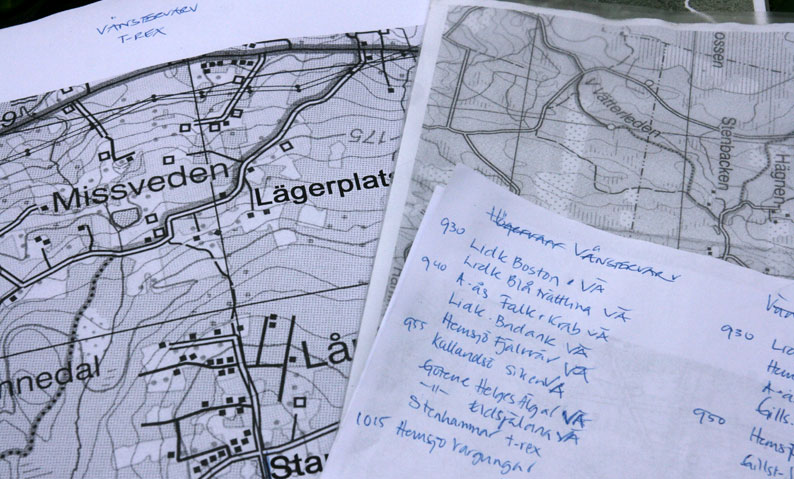 VÄNSTERVARV
T-REX
Missveden
Lägerplats
175
nnedal
Lå
Sta
V Lätterleden
Stenbacken
ossen
Hägnen
VÄNSTERVARV
930 Lidk Boston VÄ
Lidk Blå Nattlina VÄ
940 A-ås Falk, Krab VÄ
Lidk. Bndank VÄ
955 Hemsjö Fjälräv VÄ
Kållandsö siken VÄ
Götene VÄ
-11- Eldsjälarna VÄ
Stenhammar T-rex
1015 Hemsjö Vargungar
930 Lid
Hem
A-ås
Gills.
950 Hemsjö
Gillst-